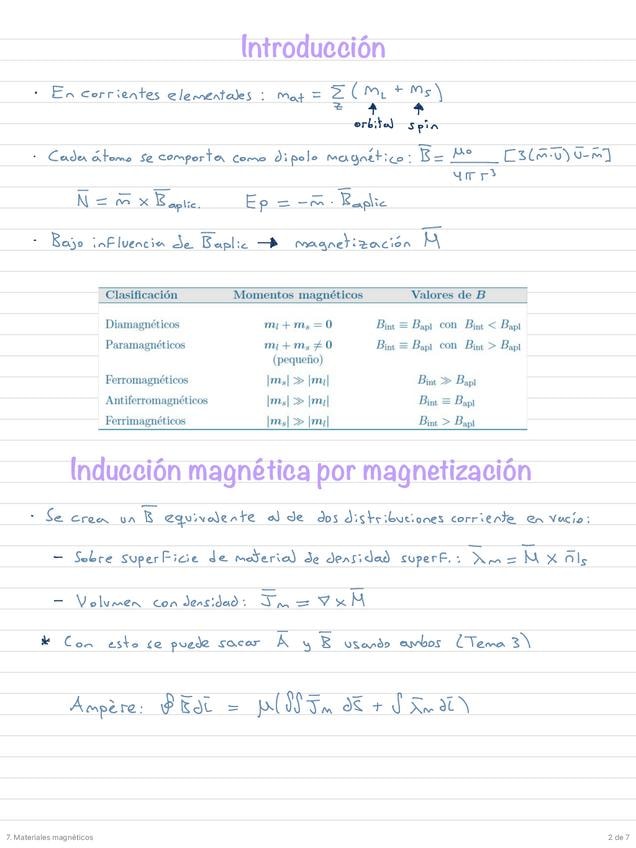 Introducción
· En corrientes elementales : mat = Σ ( mL + mS )
Z
orbital spin
· Cada átomo se comporta como dipolo magnético: B̅ = μ0 / 4πr³ [3(m̅·u̅)u̅-m̅]
N̅ = m̅ × B̅aplic. Ep = -m̅ · B̅aplic
· Bajo influencia de B̅aplic → magnetización M̅
Clasificación Momentos magnéticos Valores de B
Diamagnéticos ml + ms = 0 Bint ≡ Bapl con Bint < Bapl
Paramagnéticos ml + ms ≠ 0 Bint ≡ Bapl con Bint > Bapl
(pequeño)
Ferromagnéticos |ms| ≫ |ml| Bint ≫ Bapl
Antiferromagnéticos |ms| ≫ |ml| Bint ≡ Bapl
Ferrimagnéticos |ms| ≫ |ml| Bint > Bapl
Inducción magnética por magnetización
· Se crea un B̅ equivalente al de dos distribuciones corriente en vacío:
- Sobre superficie de material de densidad superf.: λ̅m = M̅ × n̅|s
- Volumen con densidad: J̅m = ∇ × M̅
* Con esto se puede sacar A̅ y B̅ usando ambos (Tema 3)
Ampère: ∮ B̅ dl̅ = μ(∬ J̅m ds̅ + ∫ λ̅m dl̅)
7. Materiales magnéticos 2 de 7